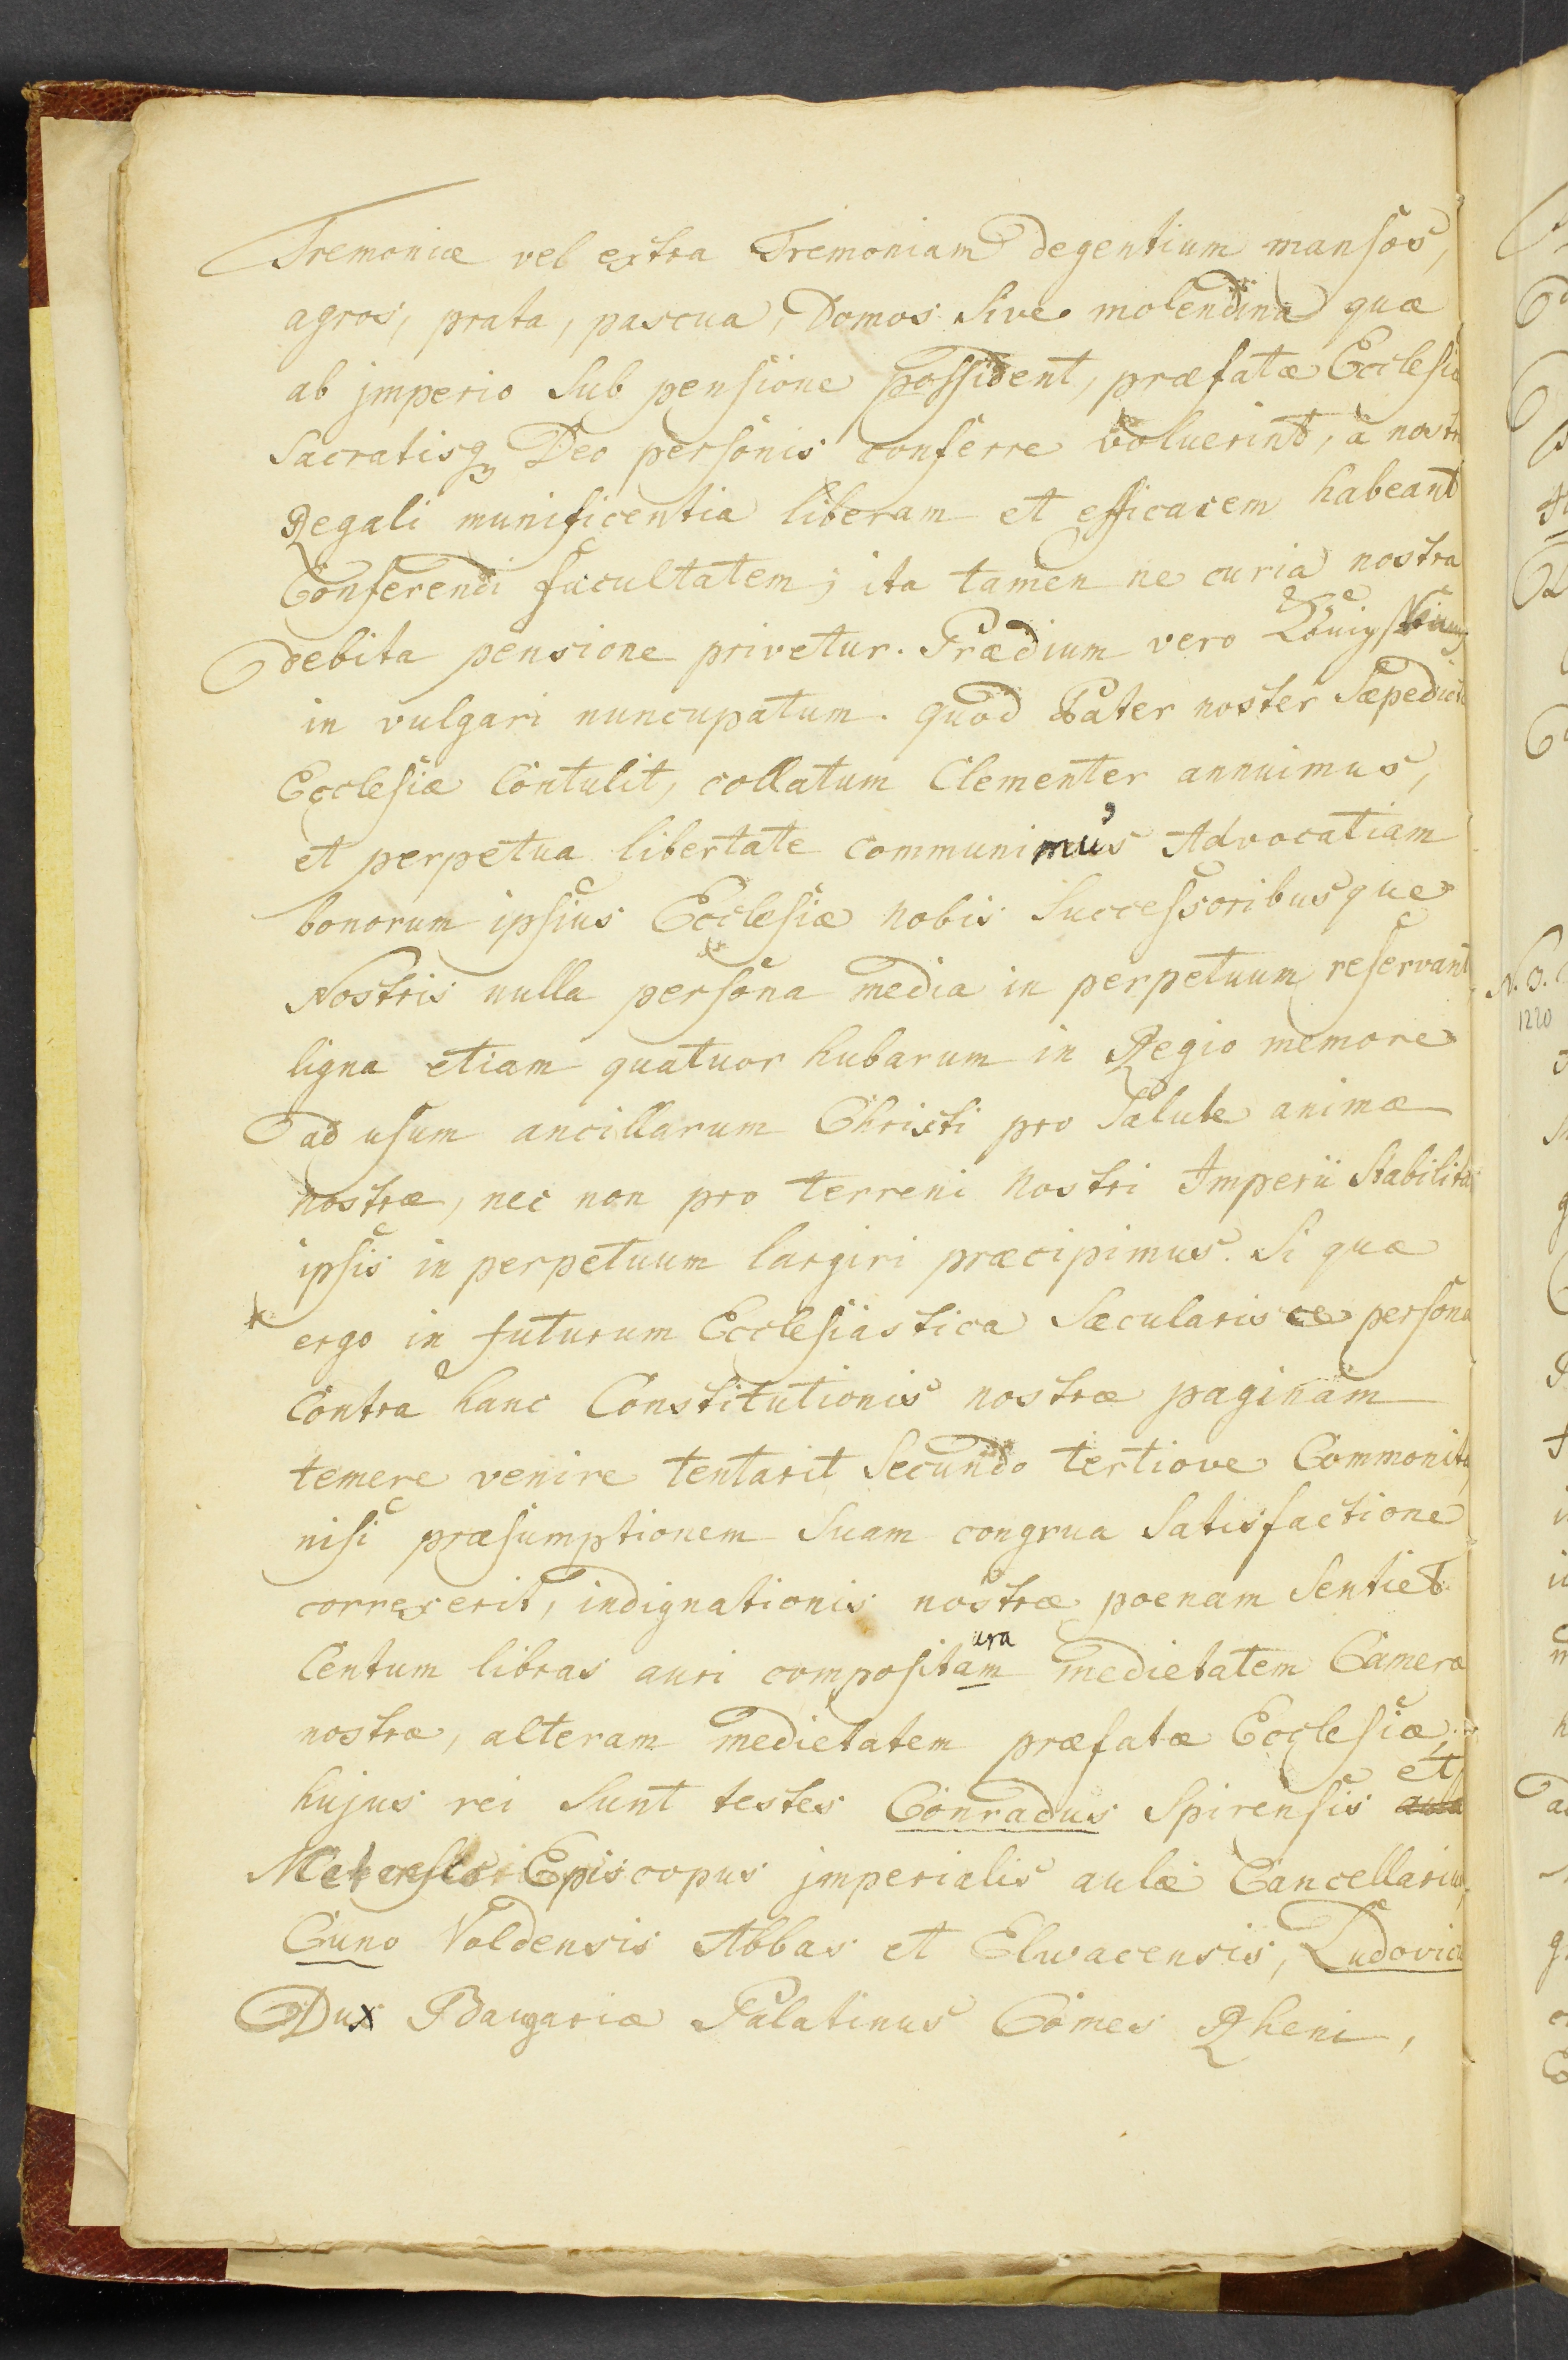 Tremoniæ vel extra Tremoniam degentium mansos,
agros, prata, pascua, Domos Sive molendina quæ
ab jmperio Sub pensione possident, præfatæ Ecclesiæ
Sacratisq Deo personis conferre voluerint, a nostr
Regali munificentia liberam et efficacem habeant
Conferendi facultatem; ita tamen ne curia nostra
debita pensione privetur. Prædium vero
in vulgari nuncupatum. quod Pater noster Sæpedict
Ecclesiæ Contulit, collatum Clementer annuimus,
et perpetua libertate communimus Advocatiam
bonorum ipsius Ecclesiæ nobis Successoribusque
Nostris nulla persona media in perpetuum reservant
ligna etiam quatuor hubarum in Regio memore
ad usum ancillarum Christi pro Salute animæ
nostræ, nec non pro terreni nostri Imperii Stabilita
ipsis in perpetuum largiri præcipimus. Si quæ
ergo in futurum Ecclesiastica Sæcularisce persona
Contra hanc Constitutionis nostræ paginam
temere venire tentarit Secundo tertiove Commonita
nisi præsumptionem Suam congrua Satisfactione
correxerit, indignationis nostræ poenam Sentiet
ura
Centum libras auri compositam medietatem Cameræ
nostræ, alteram medietatem præfatæ Ecclesiæ,
et
hujus rei Sunt testes Conradus Spirensis
Episcopus jmperialis aulæ Cancellarius,
Cuno Voldensis Abbas et Elwacensis, Ludovic
Dux Bavgariæ Palatinus Comes Rheni,
N. 3.
1220